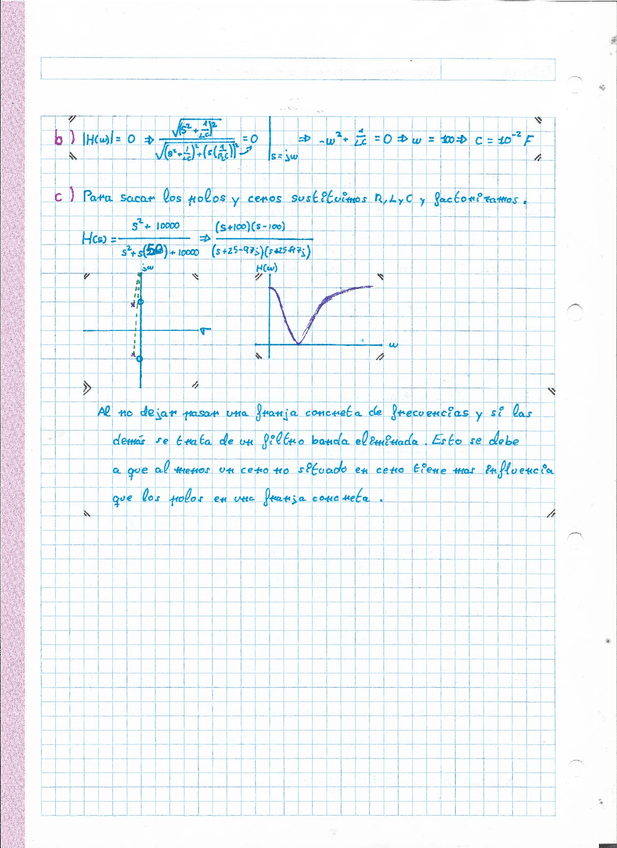 b) |H(w)| = 0 ⇒ √(s² + 1/LC)² / √((s² + 1/LC)² + (s(1/RC))²) = 0 | s = jw ⇒ -w² + 1/LC = 0 ⇒ w = 100 ⇒ C = 10⁻² F
c) Para sacar los polos y ceros sustituimos R, L y C y factorizamos.
H(s) = s² + 10000 / s² + s(50) + 10000 ⇒ (s+100)(s-100) / (s+25-97j)(s+25+97j)
jw
σ
H(w)
w
Al no dejar pasar una franja concreta de frecuencias y si las
demás se trata de un filtro banda eliminada. Esto se debe
a que al menos un cero no situado en cero tiene mas influencia
que los polos en una franja concreta.